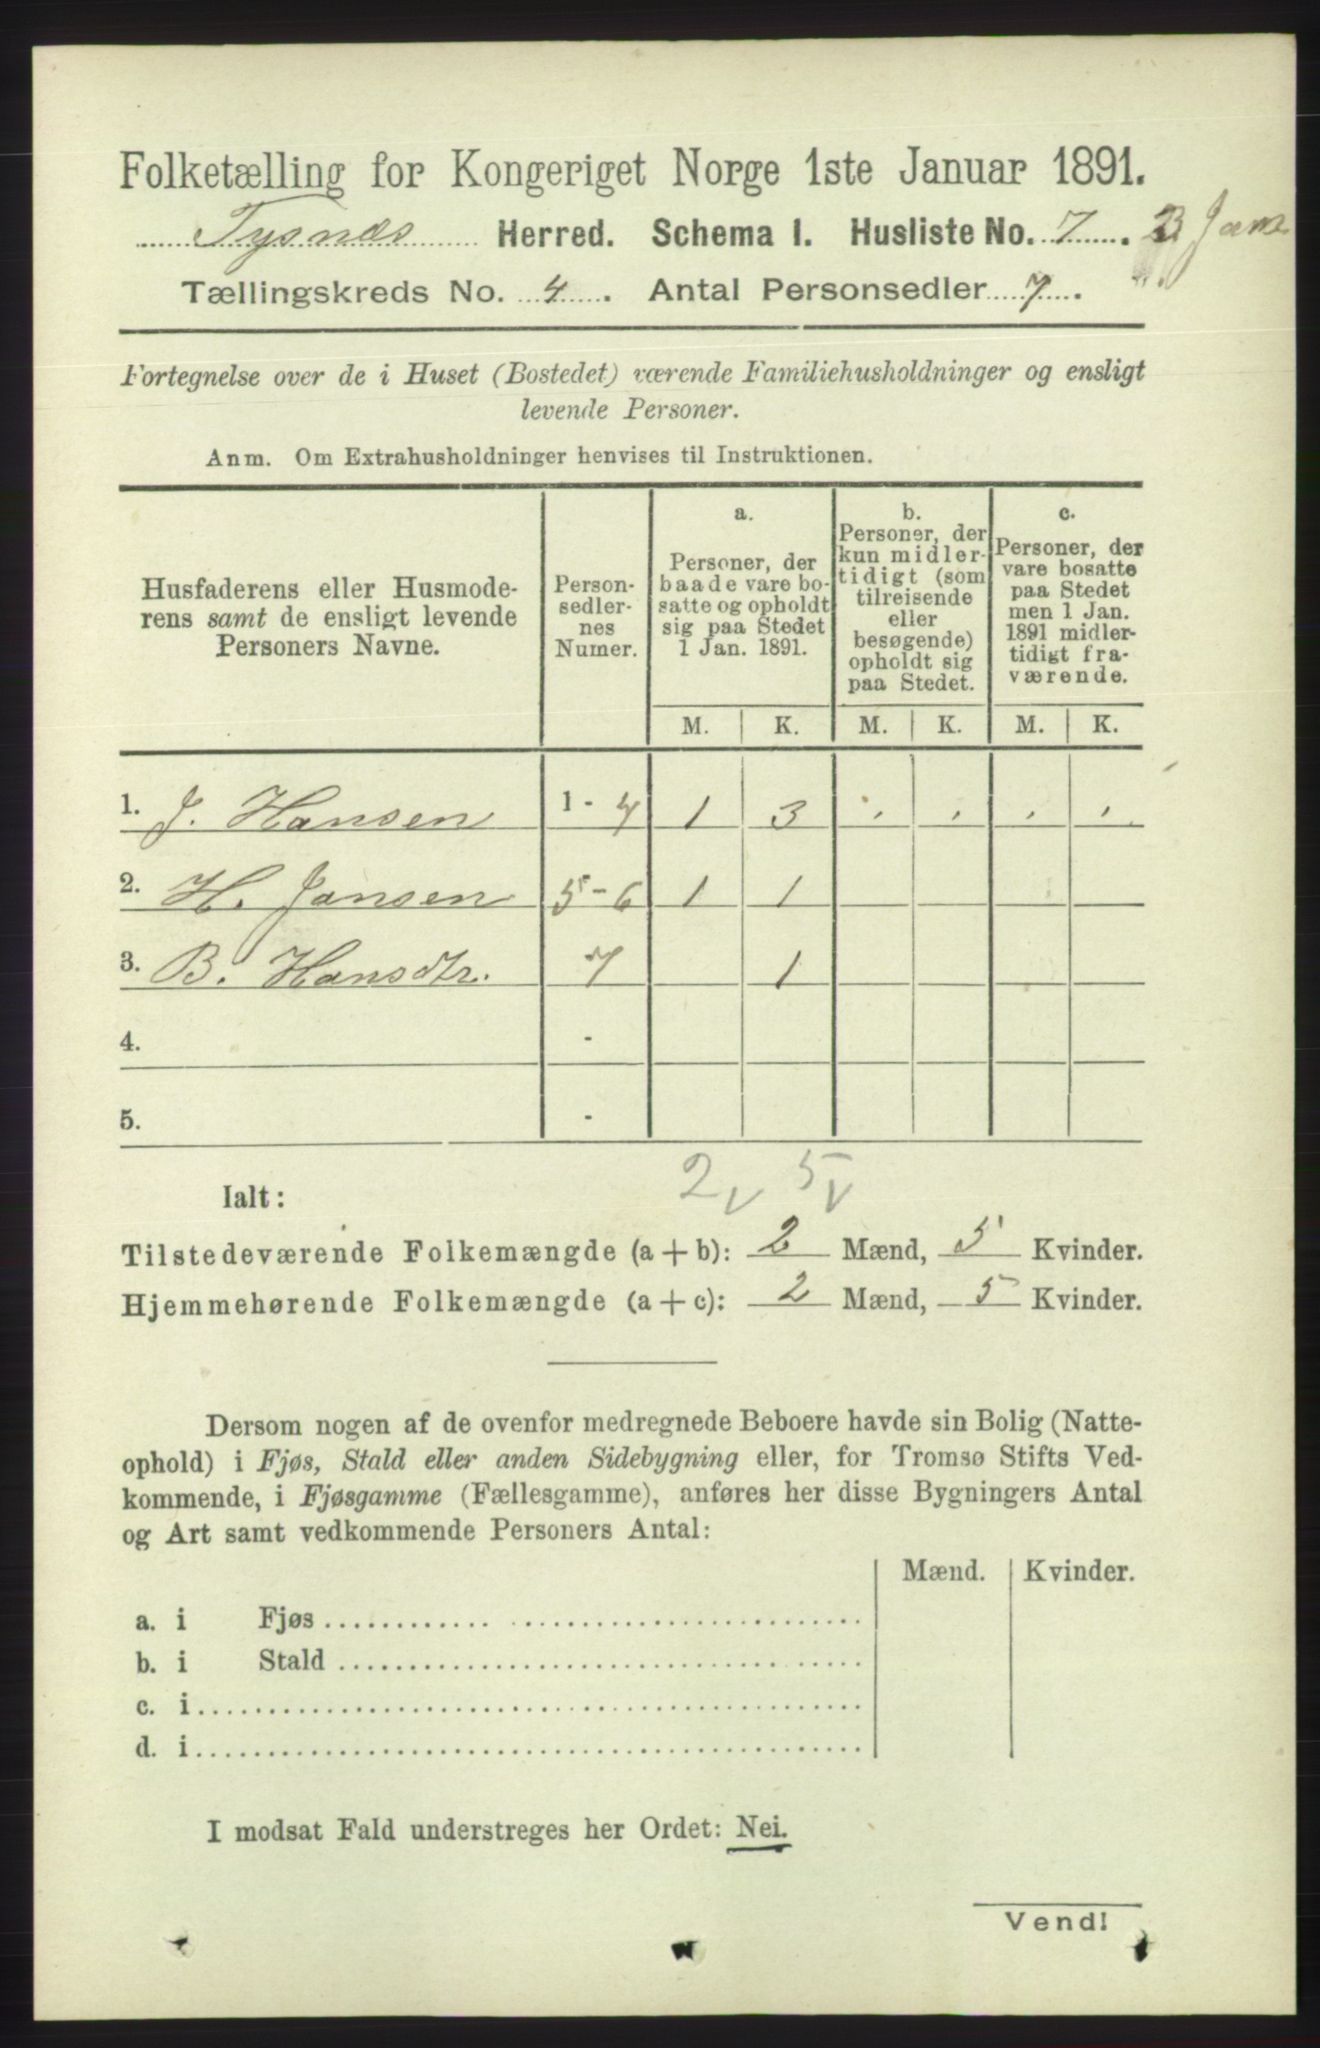 Folketælling for Kongeriget Norge 1ste Januar 1891.
Tysnæs Herred. Schema I. Husliste No. 7.
Tællingskreds No. 4. Antal Personsedler 7.
Fortegnelse over de i Huset (Bostedet) værende Familiehusholdninger og ensligt
levende Personer.
Anm. Om Extrahusholdninger henvises til Instruktionen.
Husfaderens eller Husmode-
rens samt de ensligt levende
Personers Navne.
Person-
sedler-
nes
Numer.
a.
Personer, der
baade vare bo-
satte og opholdt
sig paa Stedet
1 Jan. 1891.
b.
Personer, der
kun midler-
tidigt (som
tilreisende
eller
besøgende)
opholdt sig
paa Stedet.
c.
Personer, der
vare bosatte
paa Stedet
men 1 Jan.
1891 midler-
tidigt fra-
værende.
M. K. M. K. M. K.
1. J. Hansen 1 - 4 1 3 . . . .
2. H. Jansen 5 - 6 1 1
3. B. Hansdtr. 7 1
4. -
5. -
2 v 5 v
Ialt:
Tilstedeværende Folkemængde (a + b): 2 Mænd, 5 Kvinder.
Hjemmehørende Folkemængde (a + c): 2 Mænd, 5 Kvinder.
Dersom nogen af de ovenfor medregnede Beboere havde sin Bolig (Natte-
ophold) i Fjøs, Stald eller anden Sidebygning eller, for Tromsø Stifts Ved-
kommende, i Fjøsgamme (Fællesgamme), anføres her disse Bygningers Antal
og Art samt vedkommende Personers Antal:
Mænd. Kvinder.
a. i Fjøs
b. i Stald
c. i
d. i
I modsat Fald understreges her Ordet: Nei.
Vend!